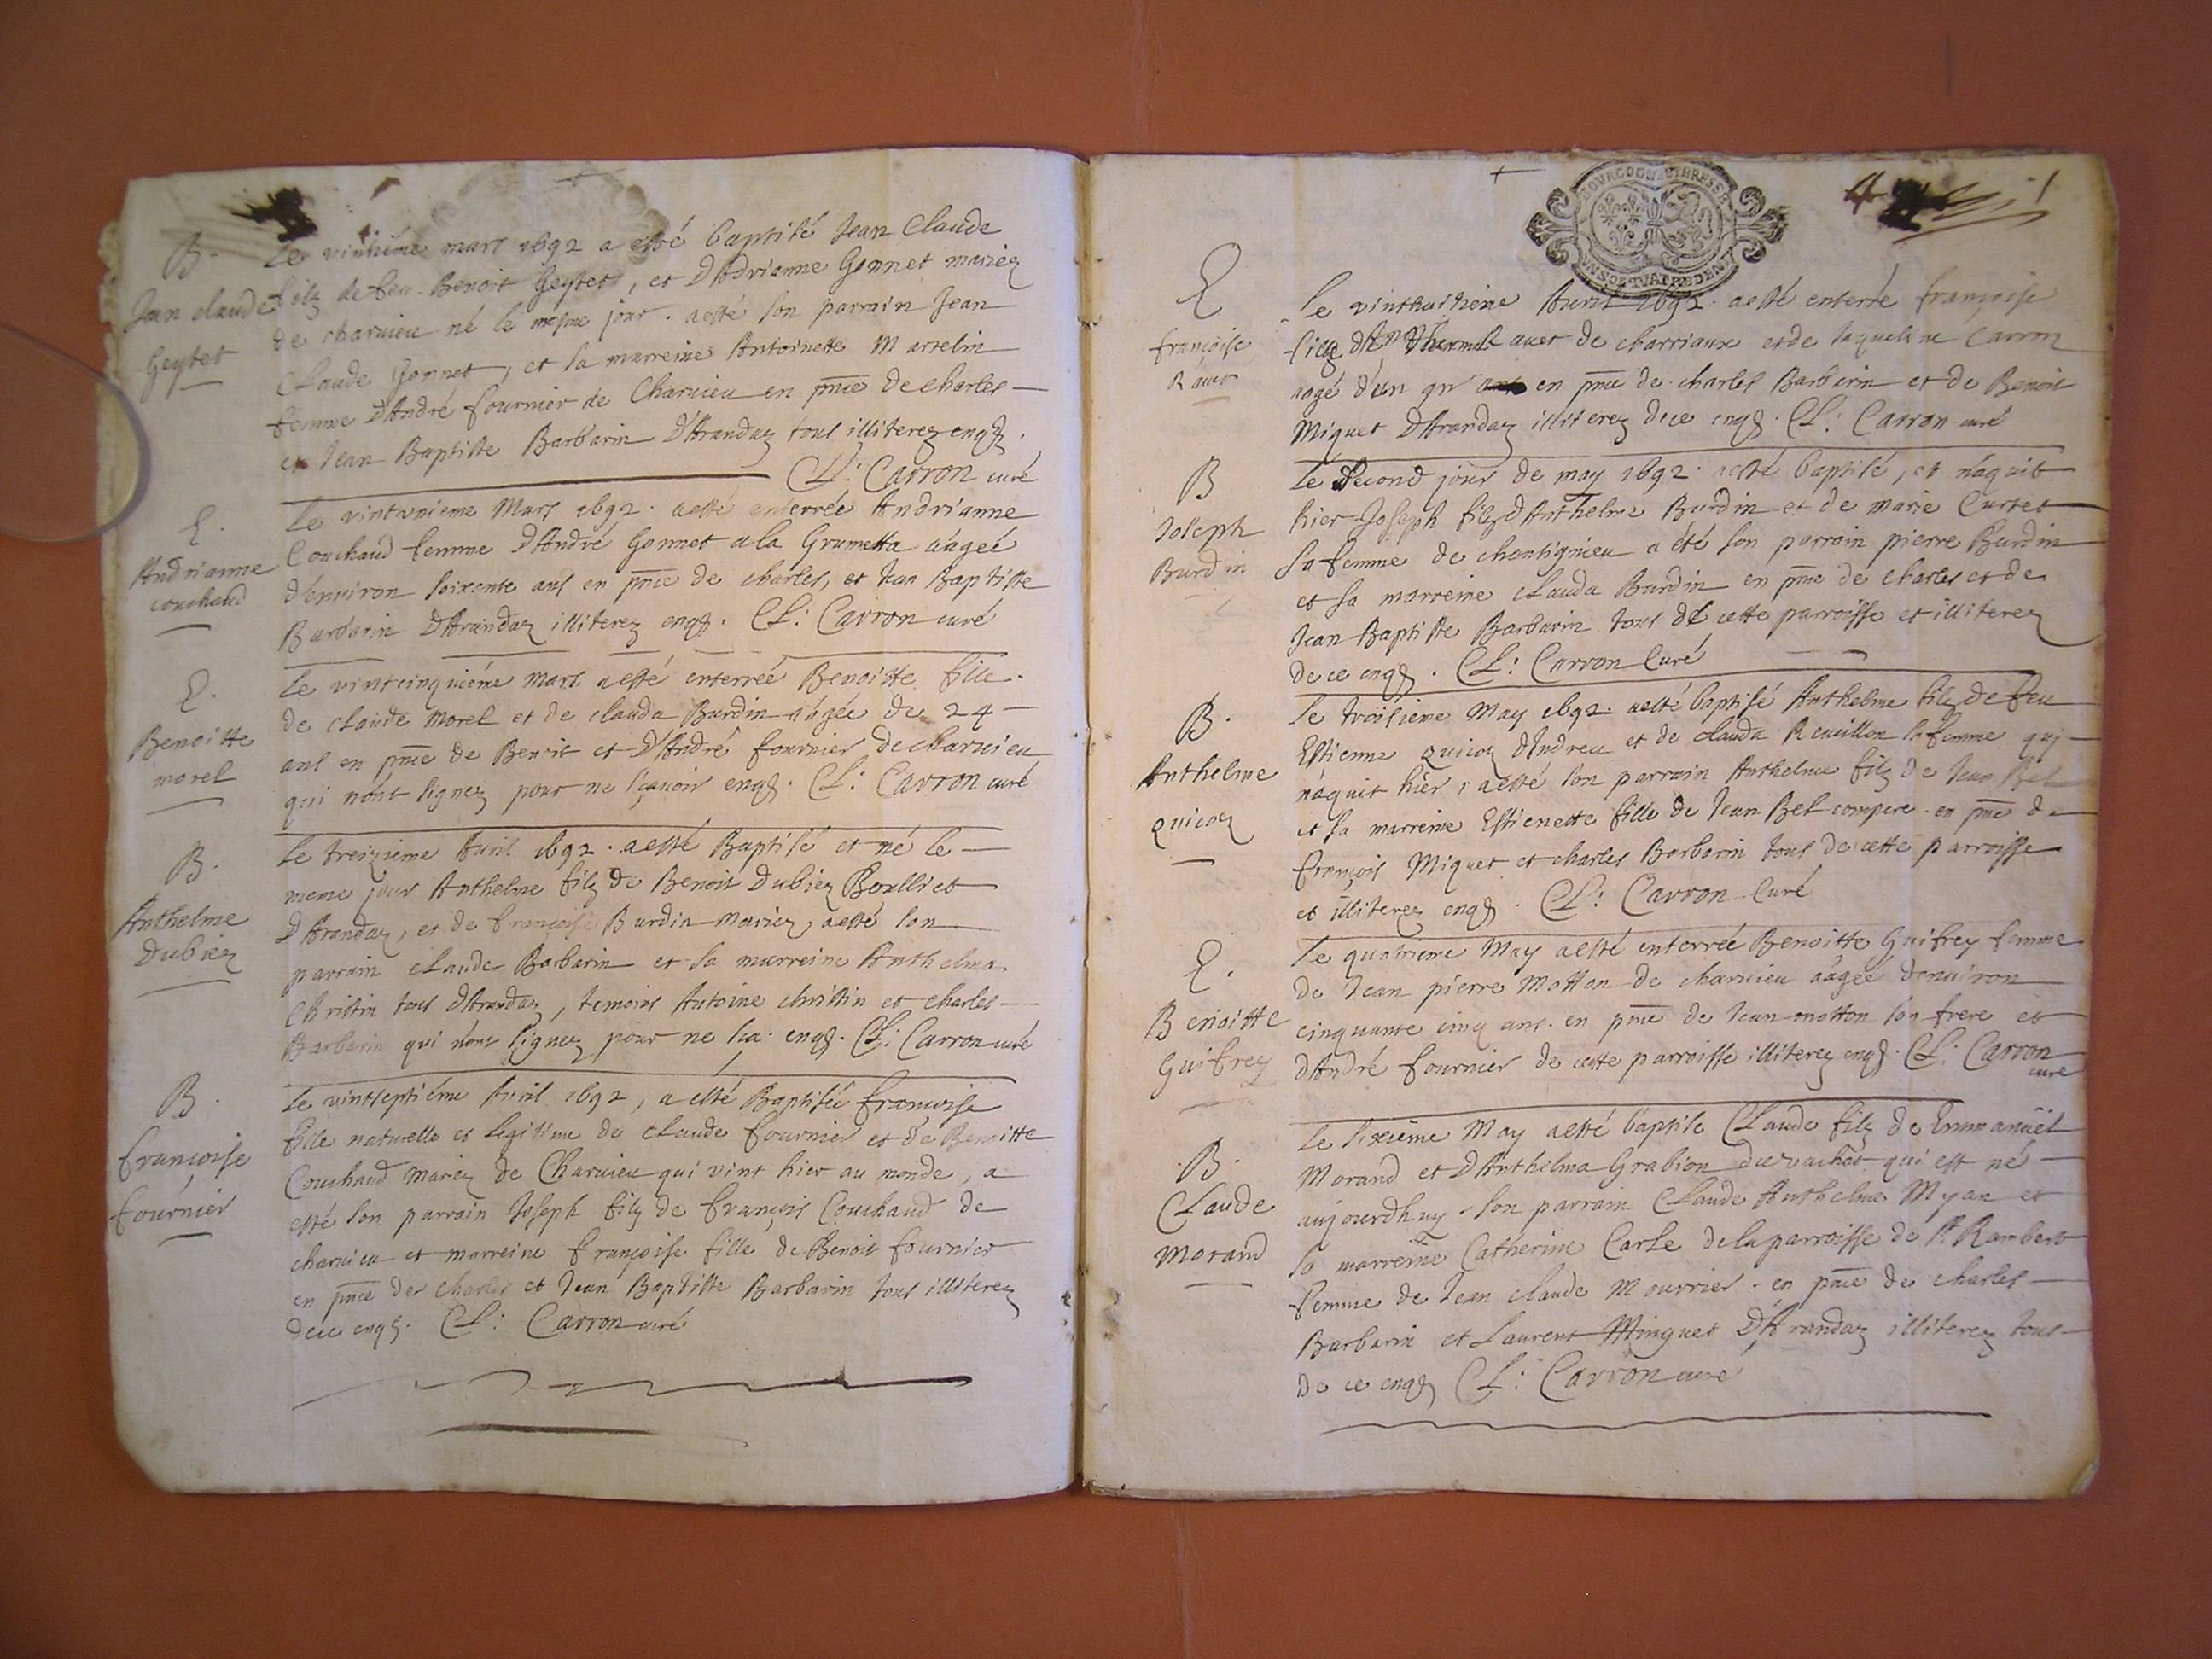 B.
Jean claude
Geytet
Le vintième mars 1692 a esté baptisé Jean Claude
filz de feu Benoit Geytet, et D'Adrianne Gonnet mariez
de charvieu né le mesme jour. aesté son parrain Jean
Claude Gonnet, et sa marreine Antoinette Martelin
femme D'André fournier de Charvieu en pnce de charles
et Jean Baptiste Barbarin D'Arandaz tous illiterez enqs.
Cl: Carron curé
E.
Andrianne
couchaud
Le vintunieme Mars 1692. aesté enterrée Andrianne
Couchaud femme D'André Gonnet a la Grumetta aàgeé
d'environ soixente ans en pnce de charles, et Jean Baptiste
Barbarin D'Arandaz illiterez enqs. Cl: Carron curé
E.
Benoitte
morel
Le vintcinquième mars aesté enterreé Benoitte fille
de claude morel et de clauda Burdin aàgée de 24
ans en pnce de Benoit et D'André fournier de charvieu
qui n'ont signez pour ne sçavoir enqs. Cl: Carron curé
B.
Anthelme
Dubiez
Le treizième Avril 1692. aesté Baptisé et né le
meme jour Anthelme filz de Benoit Dubiez Boulliet
D'Arandaz, et de françoise Burdin mariez, aesté son
parrain claude Barbarin et sa marreine Anthelma
Christin tous D'Arandaz, temoins Antoine christin et charles
Barbarin qui n'ont signez pour ne sca. enqs. Cl: Carron curé
B.
françoise
fournier
Le vintseptiéme Avril 1692, a esté Baptisée françoise
fille naturelle et legitime de claude fournier et de Benoitte
Couchaud mariez de Charvieu qui vint hier au monde, a
esté son parrain Joseph filz de françois Couchaud de
charvieu et marreine françoise fille de Benoit fournier
en pnce de charles et Jean Baptiste Barbarin tous illiterez
dece enqs. Cl: Carron curé
BOURGOGNE ET BRESSE
UN SOL QUATRE DEN
E
françoise
Ravet
Le vinthuitieme Avril 1692. aesté enterrée françoise
de charriaux et de Jaqueline Carron
aagé d'un en pnce de charles Barbarin et de Benoit
Miguet D'Arandaz illiterez dece enqs. Cl: Carron curé
B
Joseph
Burdin
Le second jour de may 1692. aesté baptisé, et náquit
hier Joseph filz d'Anthelme Burdin et de marie Curtet
sa femme de chantignieu a été son parrain pierre Burdin
et sa marreine clauda Burdin en pnce de charles et de
Jean Baptiste Barbarin tous de cette parroisse et illiterez
de ce enqs. Cl: Carron Curé
B.
Anthelme
quicoz
Le troisieme May 1692. aesté baptisé Anthelme filz de feu
Estienne quicoz d'Indreu et de clauda Reveillon sa femme qui
náquit hier, aesté son parrain Anthelme filz de Jean Bel
et sa marreine Estienette fille de Jean Bel compere. en pnce de
françois Miguet et charles Barbarin tous de cette parroisse
et illiterez enqs. Cl: Carron Curé
E.
Benoitte
Guifrey
Le quatrieme May aesté enterrée Benoitte Guifrey femme
de Jean pierre Motton de charvieu aàgeé denviron
cinquante cinq ans. en pnce de Jean motton son frere et
d'André fournier de cette parroisse illiterez enqs. Cl: Carron
curé
B.
Claude
morand
Le sixième May aesté baptisé Claude filz de Emmanüel
Morand et D'Anthelma Grabion du vachat qui est né
aujourdhuy. son parrain Claude Anthelme Myan et
sa marreine Catherine Carle de la parroisse de St Rambert
femme de Jean claude Mourrier. en pnce de charles
Barbarin et Laurent Minguet D'Arandaz illiterez tous
de ce enqs Cl: Carron curé